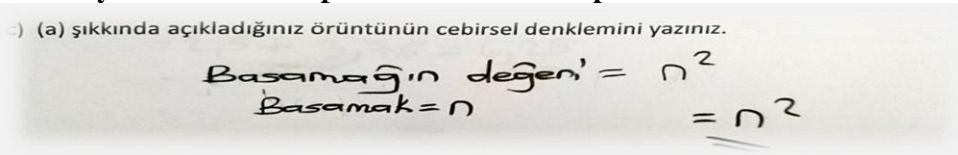 c) (a) şıkkında açıkladığınız örüntünün cebirsel denklemini yazınız.
Basamağın değeri = n²
Basamak = n
= n²